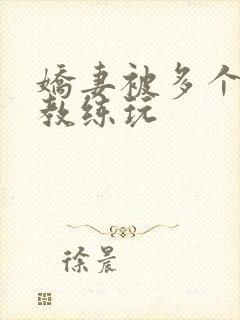 嬌妻被多个
教练玩
徐晨